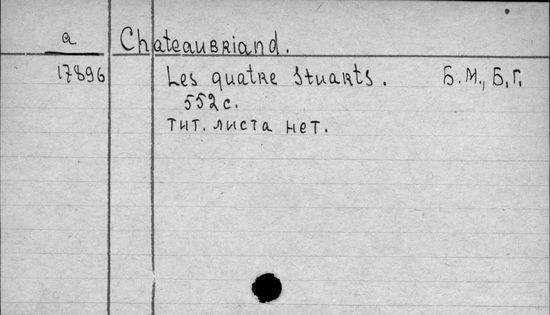 a Chateaubriand.
17896 Les quatre Stuarts. Б.М., Б.Г.
552 с.
тит. листа нет.